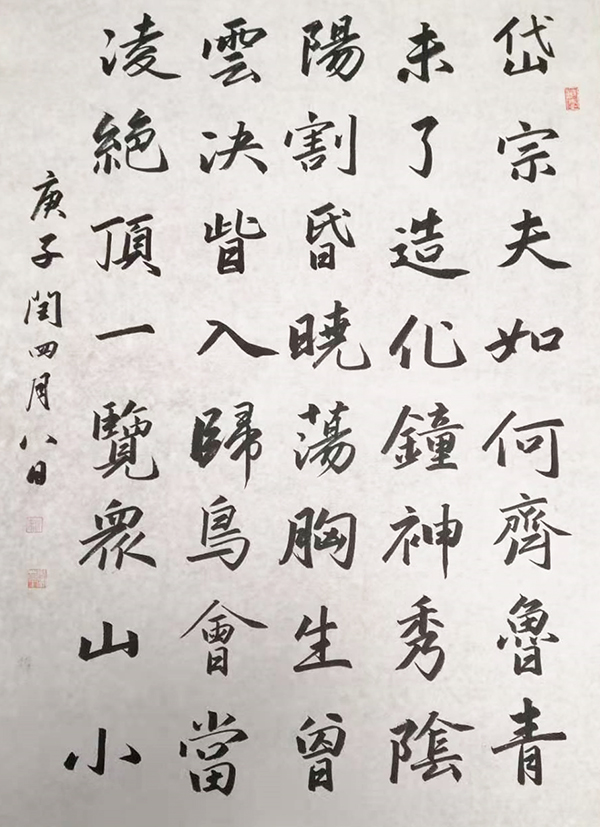 岱宗夫如何齊魯青
未了造化鐘神秀陰
陽割昏曉蕩胸生曾
雲决眥入歸鳥會當
凌絶頂一覽眾山小
庚子閏四月八日